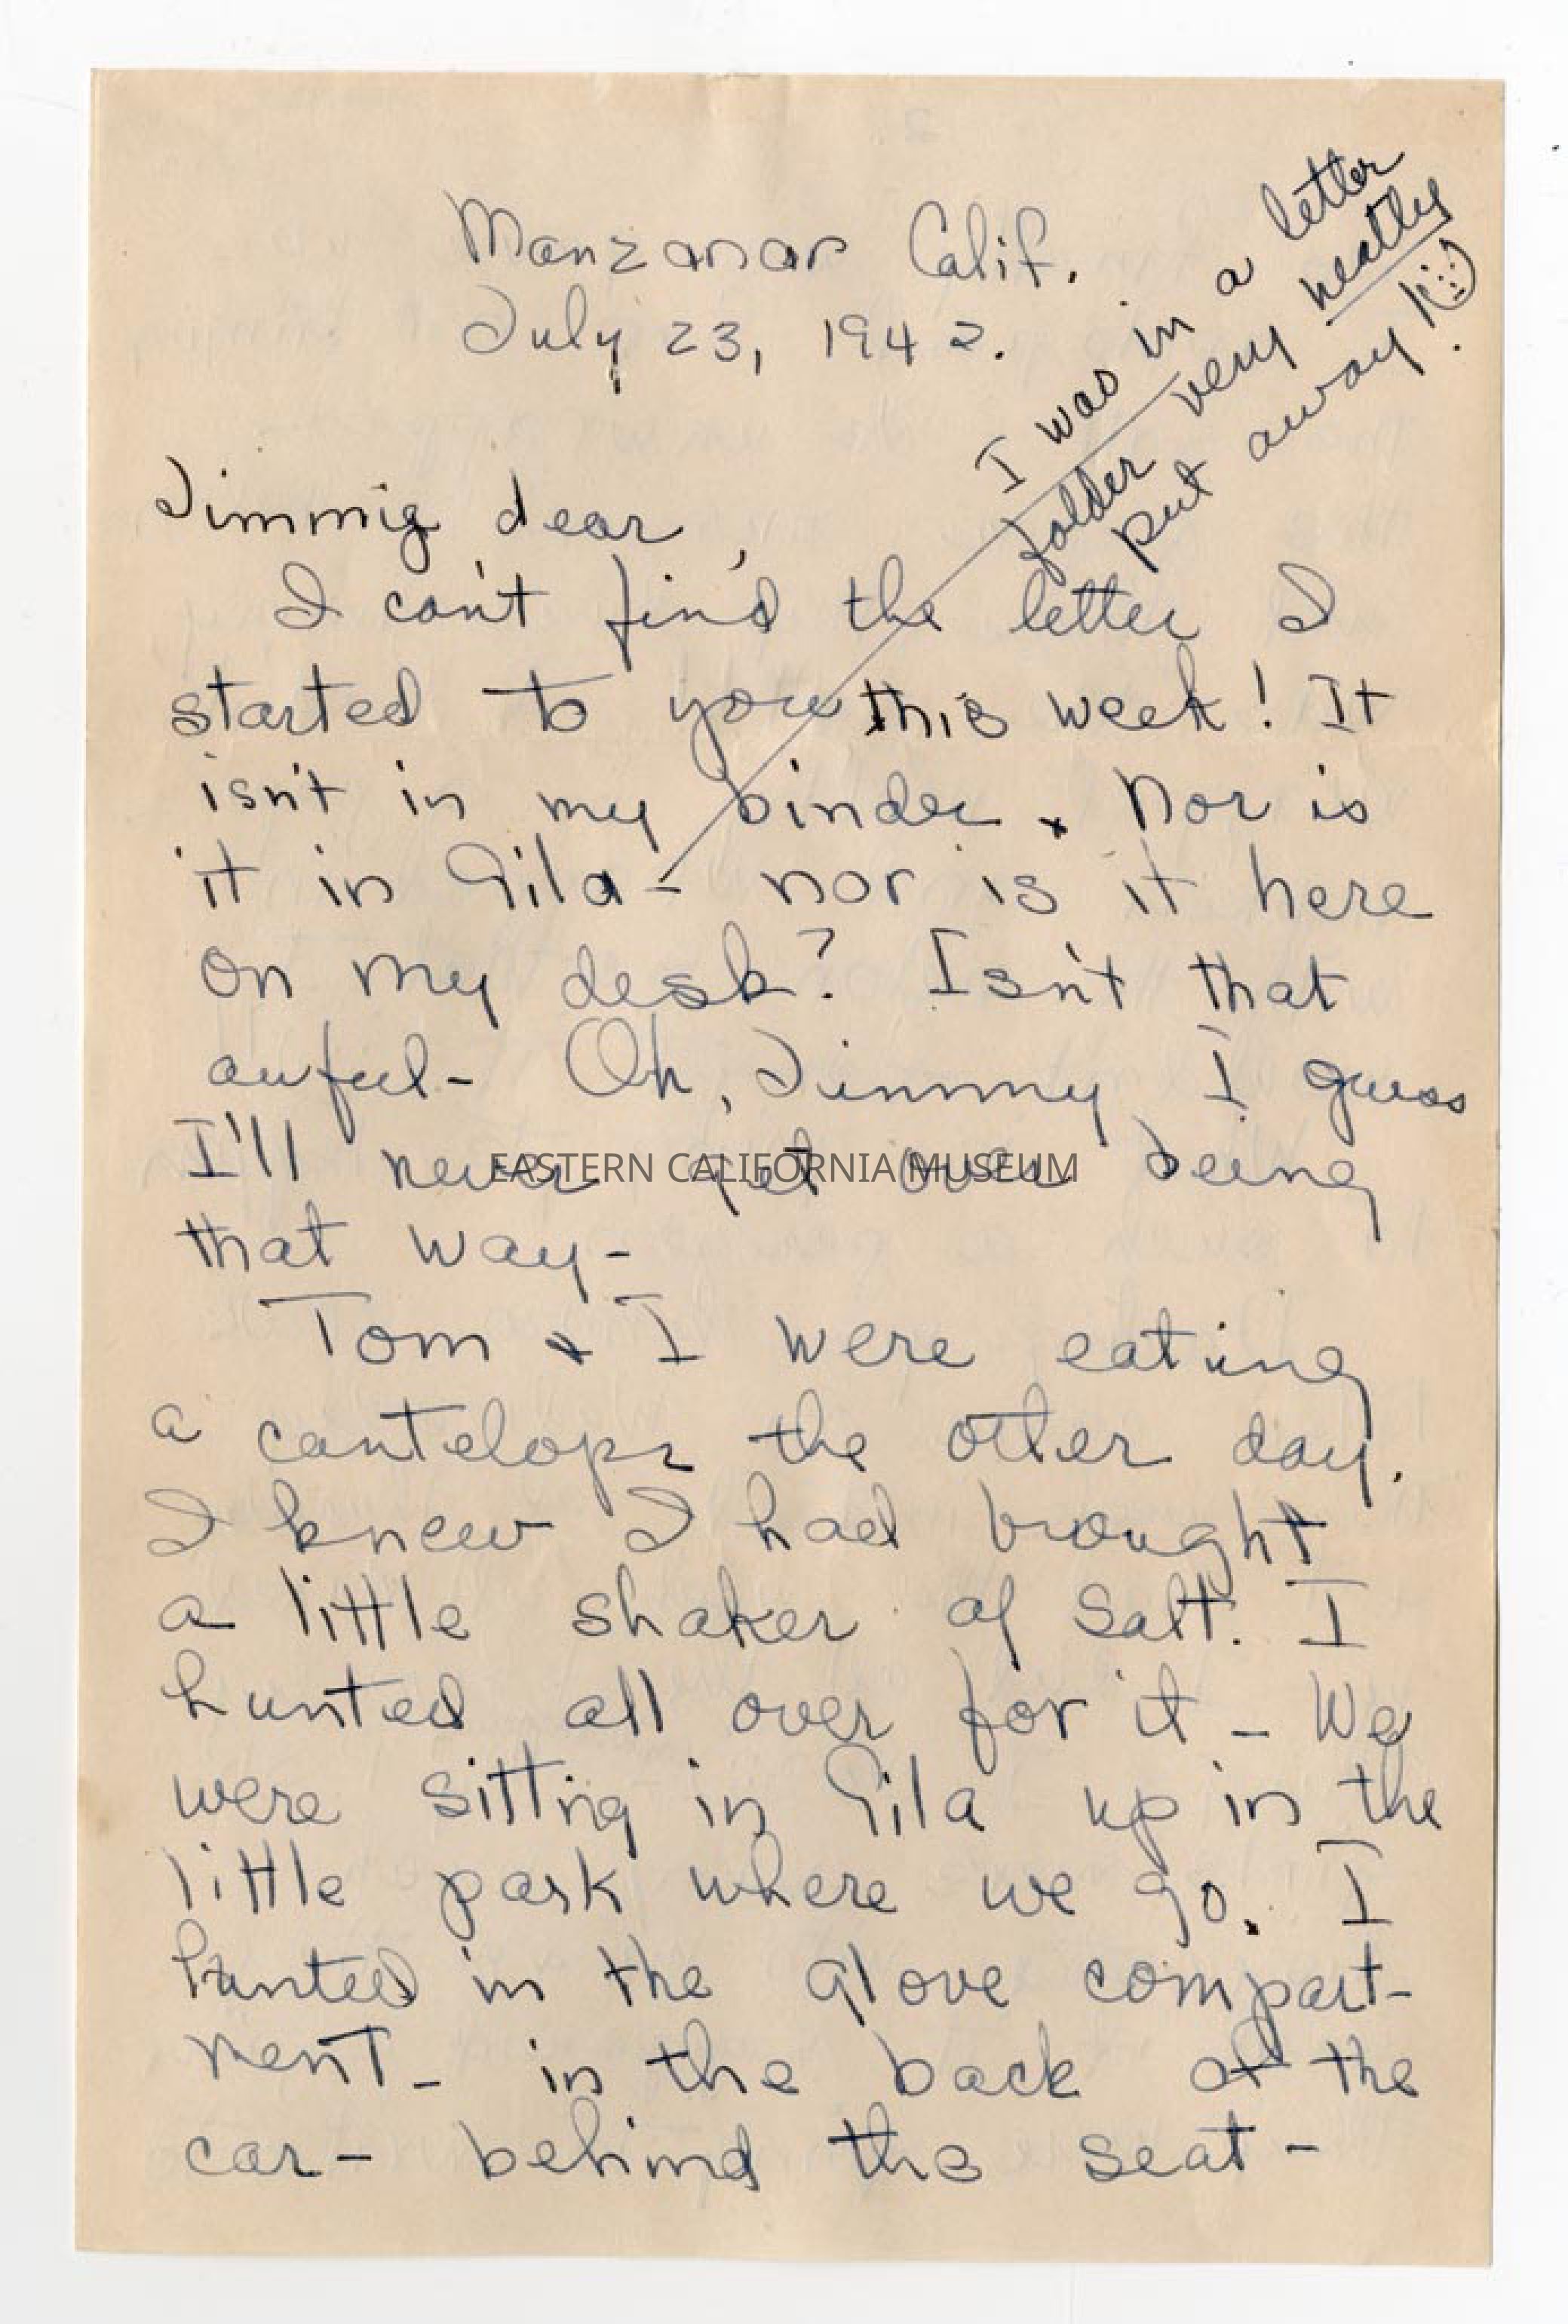 Manzanar Calif.
July 23, 1942.
I was in a letter
folder very neatly
put away!
Jimmie dear,
I can't find the letter I
started to you this week! It
isn't in my binder. Nor is
it in Gila - nor is it here
on my desk? Isn't that
awful - Oh, Jimmy I guess
I'll never get over being
that way -
Tom & I were eating
a cantelope the other day.
I knew I had brought
a little shaker of salt. I
hunted all over for it - We
were sitting in Gila up in the
little park where we go. I
hunted in the glove compart-
ment - in the back of the
car - behind the seat -
EASTERN CALIFORNIA MUSEUM